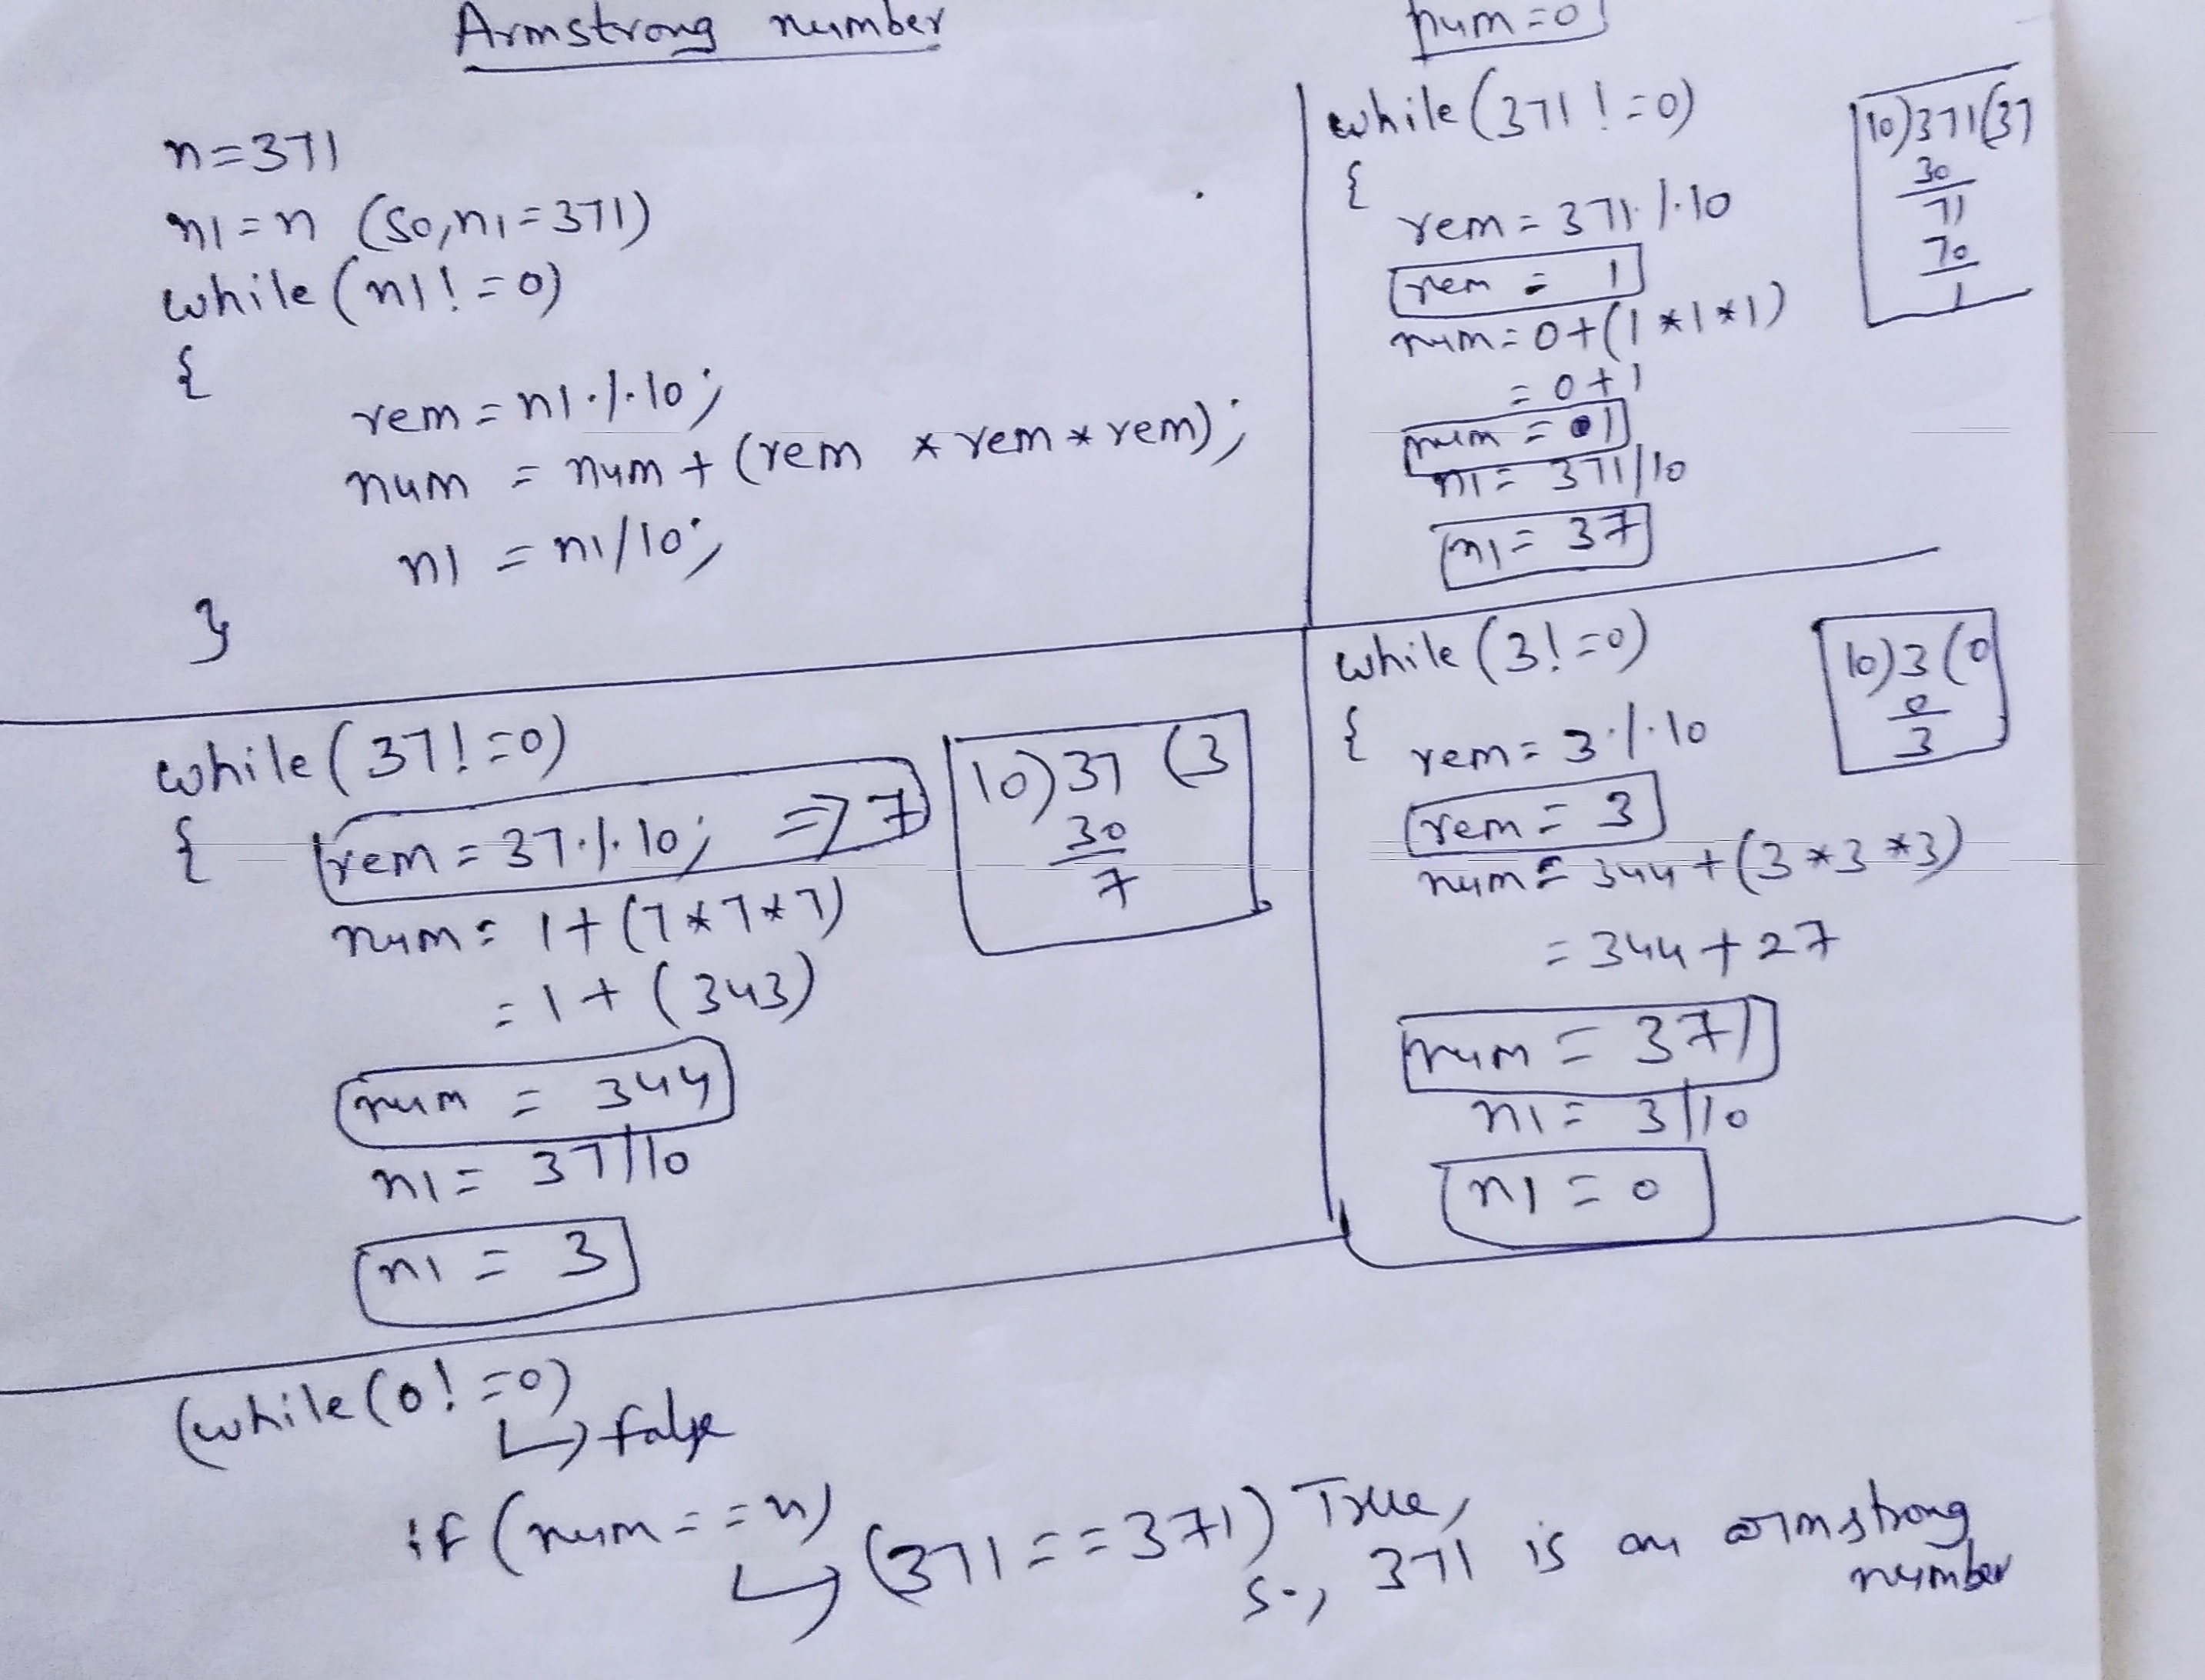 Armstrong number
num=0;
n=371
n1=n (So, n1=371)
while(n1!=0)
{
rem=n1%10;
num = num+(rem *rem*rem);
n1 = n1/10;
}
while(371!=0)
{
rem=371%10
rem = 1
num=0+(1*1*1)
=0+1
num = 01
n1= 371/10
n1= 37
10)371(37
30
71
70
1
while(37!=0)
{
rem=37%10; => 7
num= 1+(7*7*7)
=1+(343)
num = 344
n1= 37/10
n1 = 3
10)37(3
30
7
while(3!=0)
{
rem=3%10
rem= 3
num= 344+(3*3*3)
=344+27
num = 371
n1= 3/10
n1 = 0
10)3(0
0
3
(while(0!=0)
↳ false
if(num==n)
↳ (371==371) True,
So, 371 is an armstrong
number